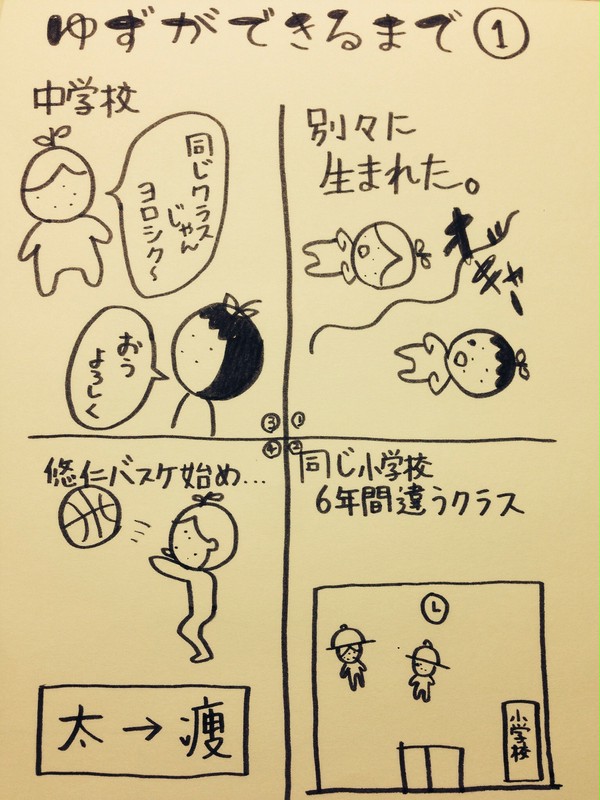 ゆずができるまで①
別々に
生まれた。
オンギャー
①
同じ小学校
6年間違うクラス
小学校
②
中学校
同じクラス
じゃん
ヨロシク〜
おう
よろしく
③
悠仁バスケ始め…
太→痩
④